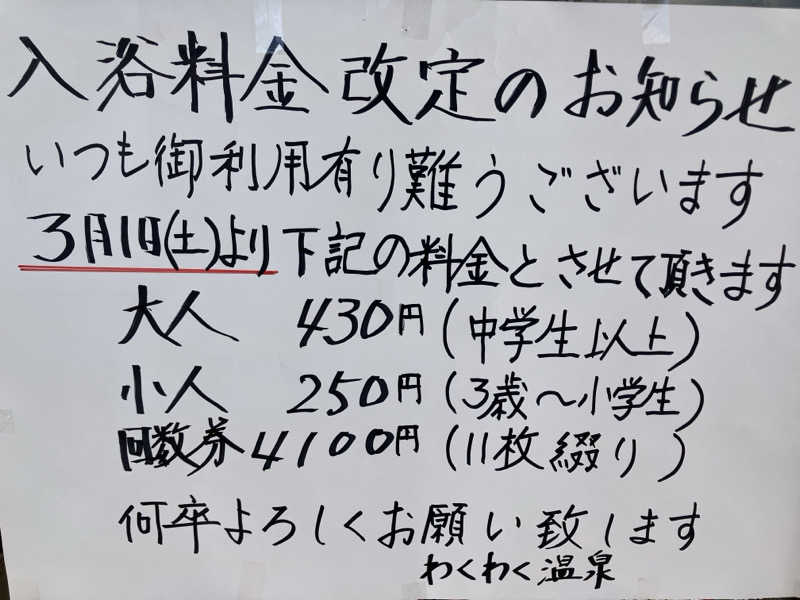 入浴料金改定のお知らせ
いつも御利用有り難うございます
3月1日(土)より下記の料金とさせて頂きます
大人 430円(中学生以上)
小人 250円(3歳～小学生)
回数券 4100円(11枚綴り)
何卒よろしくお願い致します
わくわく温泉